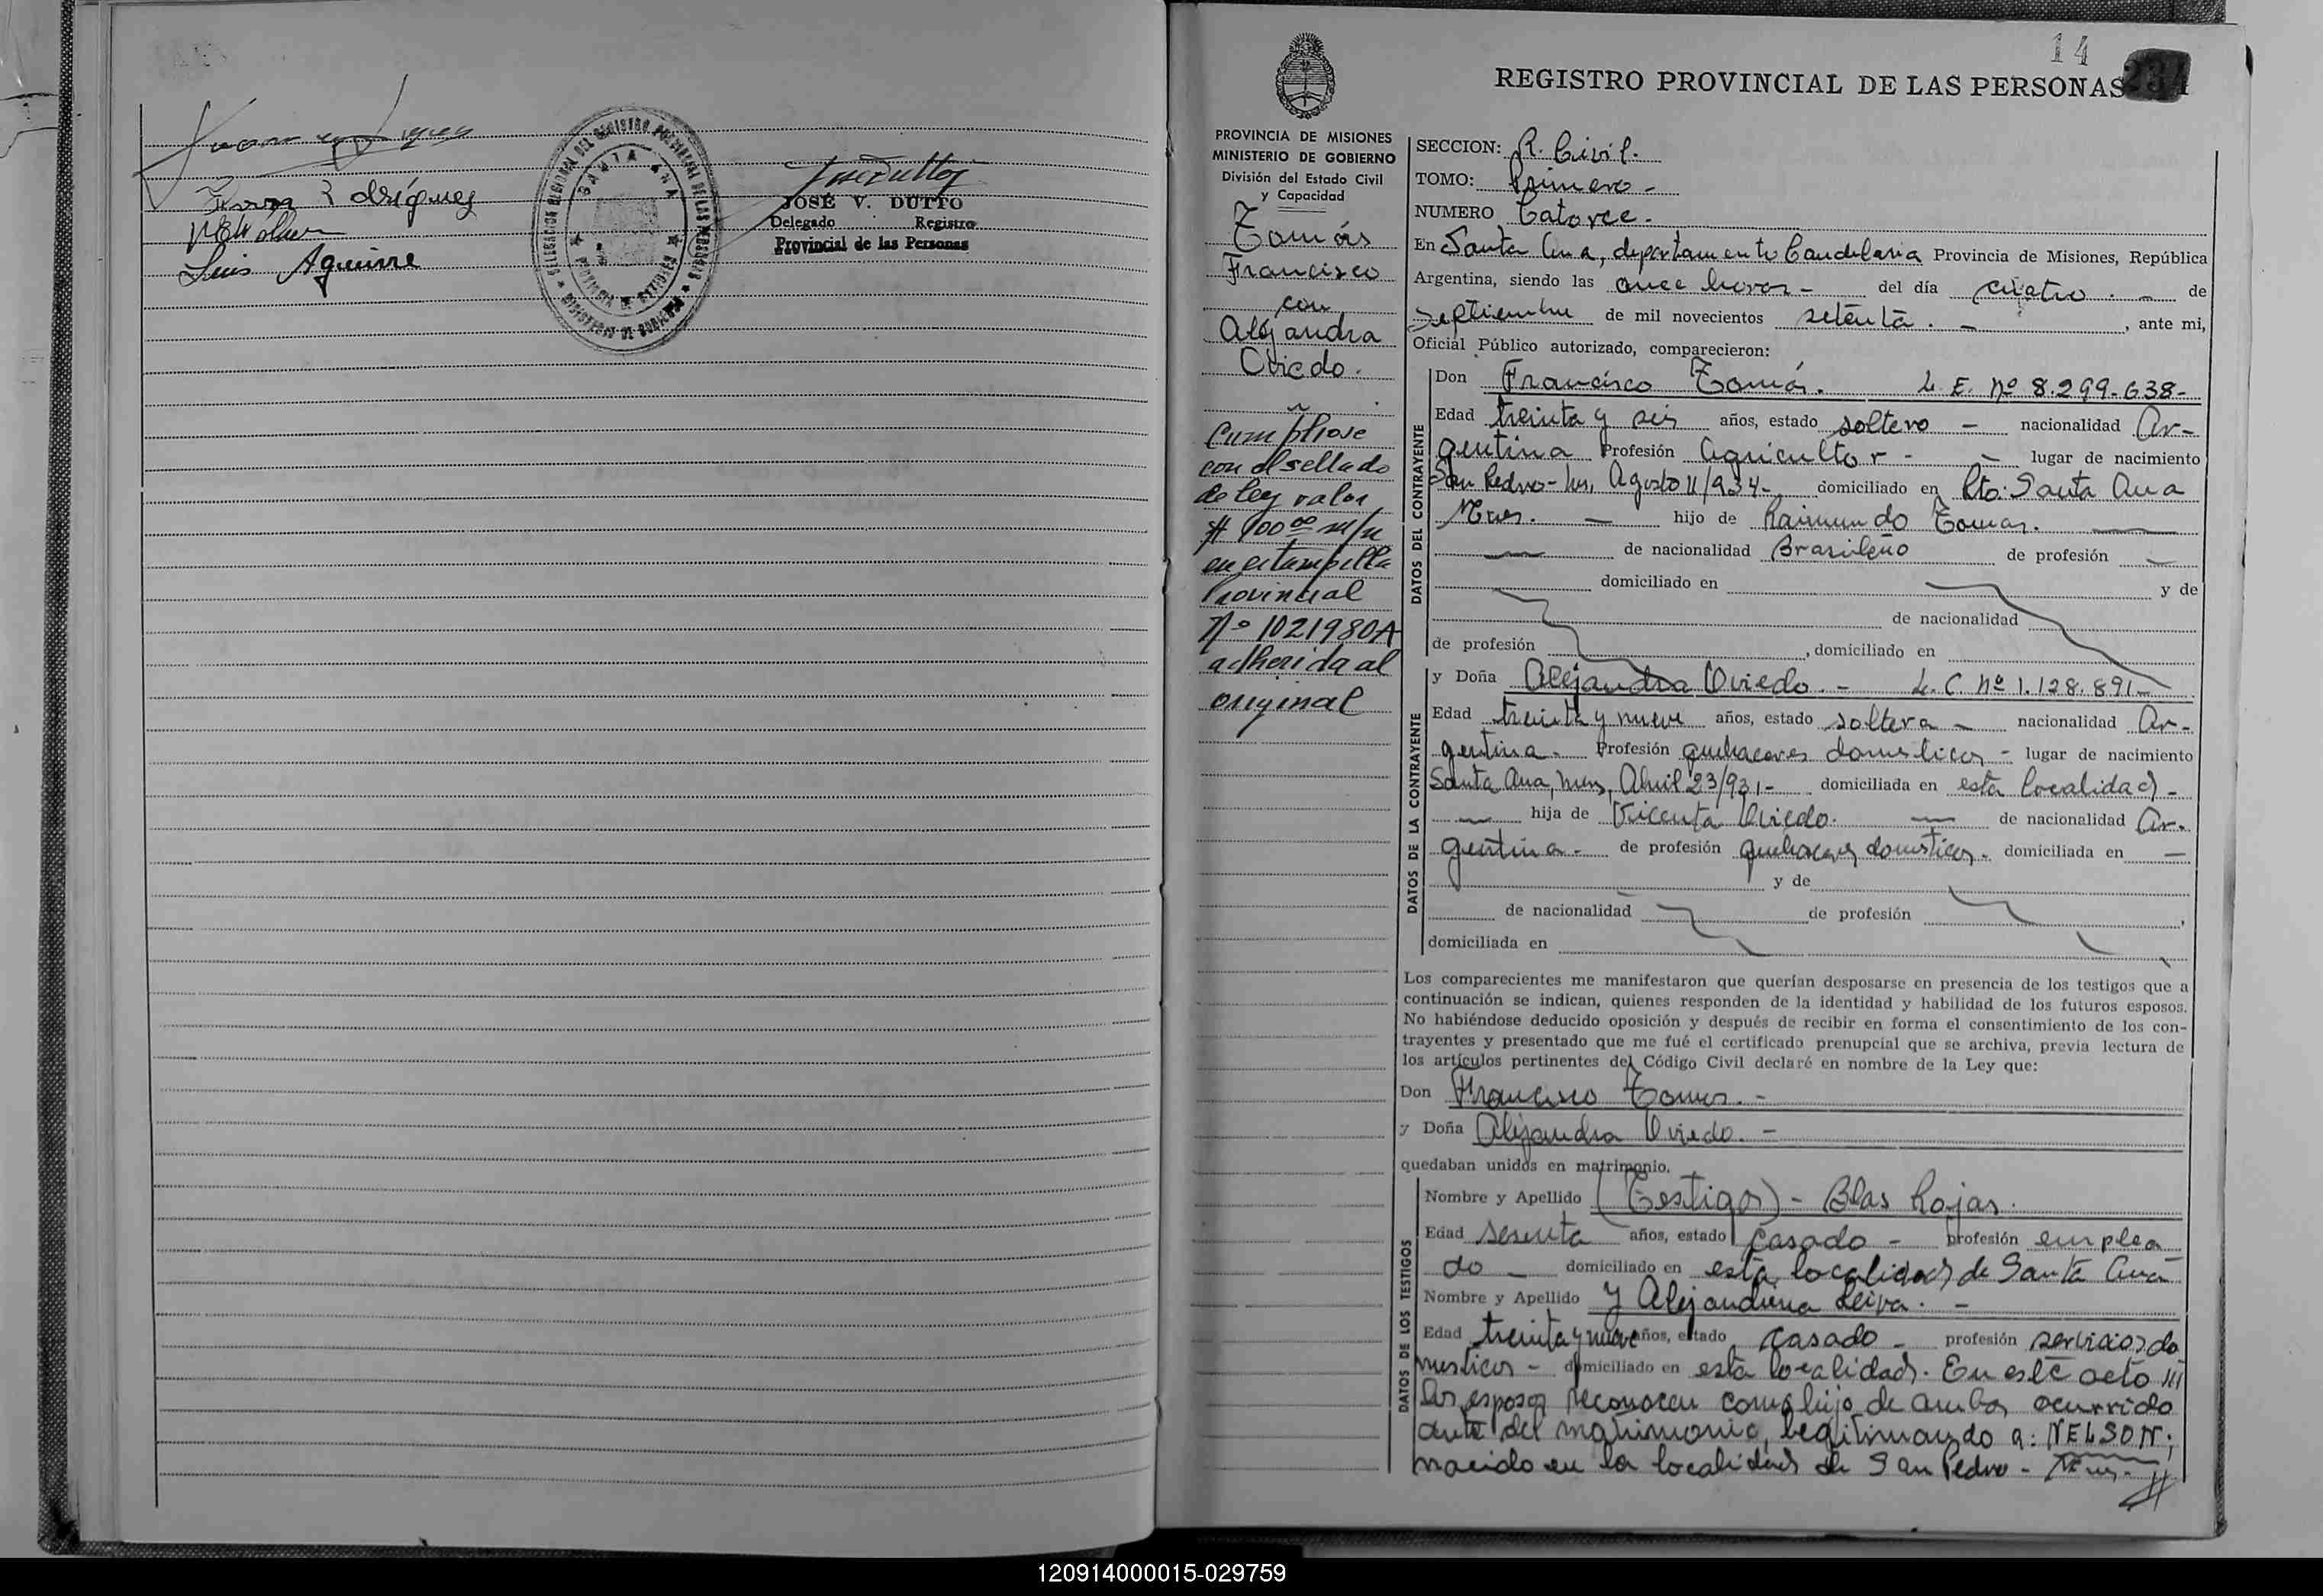 Rodríguez
Luis Aguirre
SANTA ANA
JOSÉ V. DUTTO
Delegado Registro
Provincial de las Personas
14
234
REGISTRO PROVINCIAL DE LAS PERSONAS
PROVINCIA DE MISIONES
MINISTERIO DE GOBIERNO
División del Estado Civil
y Capacidad
Tomás
Francisco
con
Alejandra
Oviedo.
Cumpliose
con el sellado
de ley valor
$ 100 00 m/n
en estampilla
Provincial
Nº 1021980A
adherida al
original
SECCION: R. Civil.
TOMO: Primero -
NUMERO Catorce.
En Santa Ana, departamento Candelaria Provincia de Misiones, República
Argentina, siendo las once horas - del día cuatro. - de
septiembre de mil novecientos setenta. - , ante mi,
Oficial Público autorizado, comparecieron:
DATOS DEL CONTRAYENTE
Don Francisco Tomás. L. E. Nº 8.299.638-
Edad treinta y seis años, estado soltero - nacionalidad Ar-
gentina Profesión Agricultor - lugar de nacimiento
San Pedro - Mnes, Agosto 11/934- domiciliado en Pto. Santa Ana
Mnes. - hijo de Raimundo Tomas. -
- de nacionalidad Brasileño de profesión -
domiciliado en y de
de nacionalidad
de profesión , domiciliado en
DATOS DE LA CONTRAYENTE
y Doña Alejandra Oviedo. - L. C. Nº 1.128.891-
Edad treinta y nueve años, estado soltera - nacionalidad Ar-
gentina. Profesión quehaceres domesticos - lugar de nacimiento
Santa Ana, Mnes, Abril 23/931- domiciliada en esta localidad -
- hija de Vicenta Oviedo. - de nacionalidad Ar-
gentina - de profesión quehaceres domésticos. domiciliada en -
y de
de nacionalidad de profesión ,
domiciliada en
Los comparecientes me manifestaron que querían desposarse en presencia de los testigos que a
continuación se indican, quienes responden de la identidad y habilidad de los futuros esposos.
No habiéndose deducido oposición y después de recibir en forma el consentimiento de los con-
trayentes y presentado que me fué el certificado prenupcial que se archiva, previa lectura de
los artículos pertinentes del Código Civil declaré en nombre de la Ley que:
Don Francisco Tomas. -
y Doña Alejandra Oviedo. -
quedaban unidos en matrimonio.
DATOS DE LOS TESTIGOS
Nombre y Apellido (Testigos) - Blas Rojas.
Edad sesenta años, estado casado - profesión emplea
do - domiciliado en esta localidad de Santa Ana
Nombre y Apellido y Alejandrina Leiva. -
Edad treinta y nueve años, estado casado - profesión servicios do
mesticos - domiciliado en esta localidad. En este acto ///
los esposos reconocen como hijo de ambos ocurrido
ante del matrimonio, legitimando a: NELSON;
nacido en la localidad de San Pedro - Mnes. - //
120914000015-029759